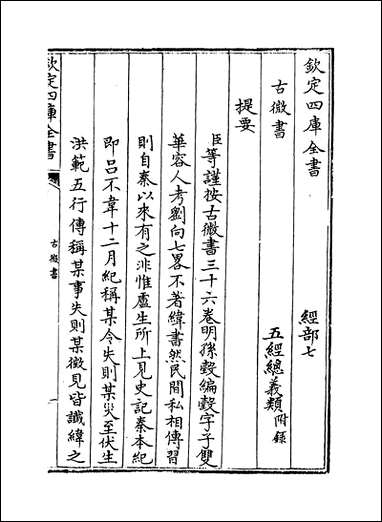 欽定四庫全書 經部七
古微書 五經總義類附錄
提要
臣等謹按古微書三十六卷明孫瑴編瑴字子雙
華容人考劉向七畧不著緯書然民間私相傳習
則自秦以來有之非惟盧生所上見史記秦本紀
即呂不韋十二月紀稱某令失則某災至伏生
洪範五行傳稱某事失則某徵見皆讖緯之
欽定四庫全書
古微書
一